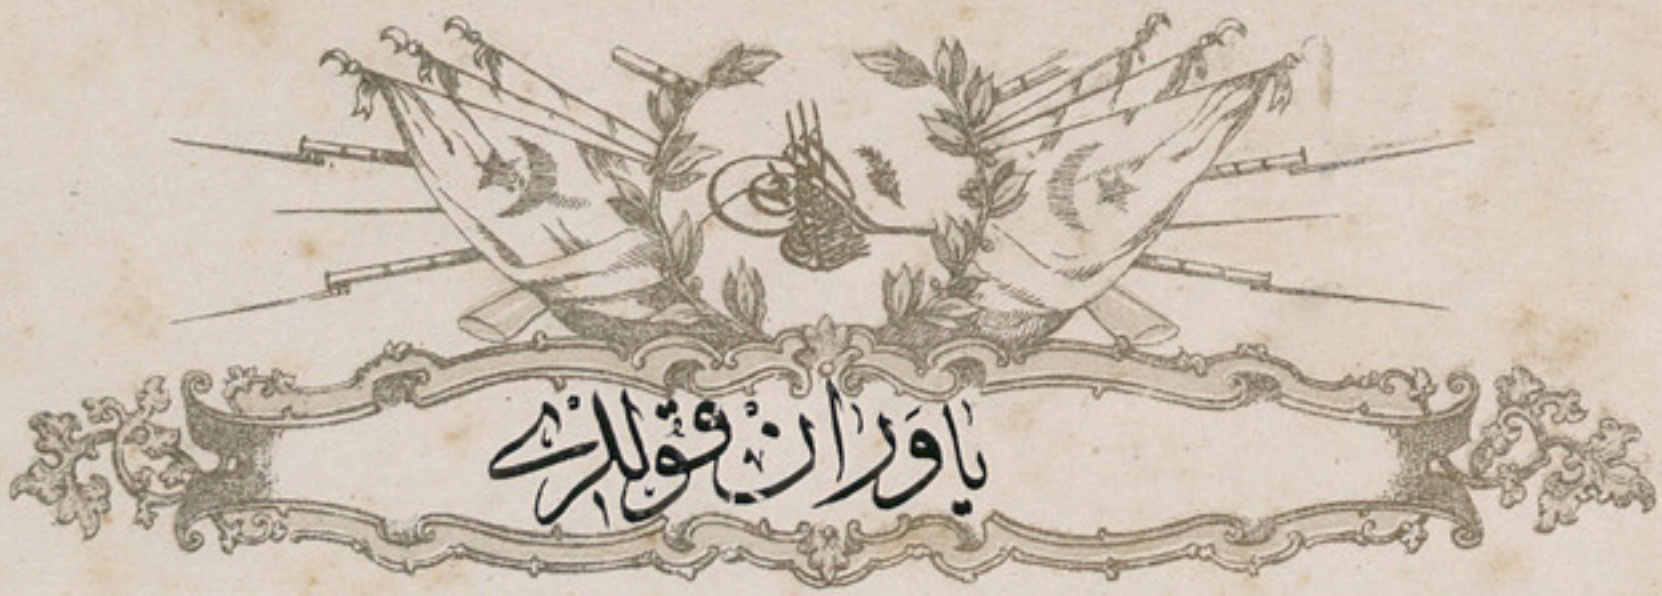 یاوران قوللری